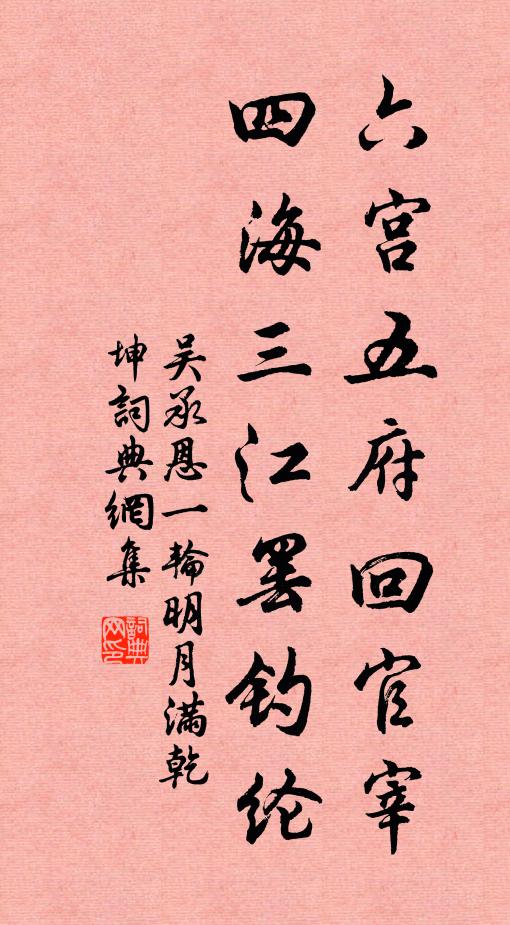 六宫五府回官宰
四海三江罢钓纶
吴承恩一輪明月满乾
坤詞典網集
詞典网印